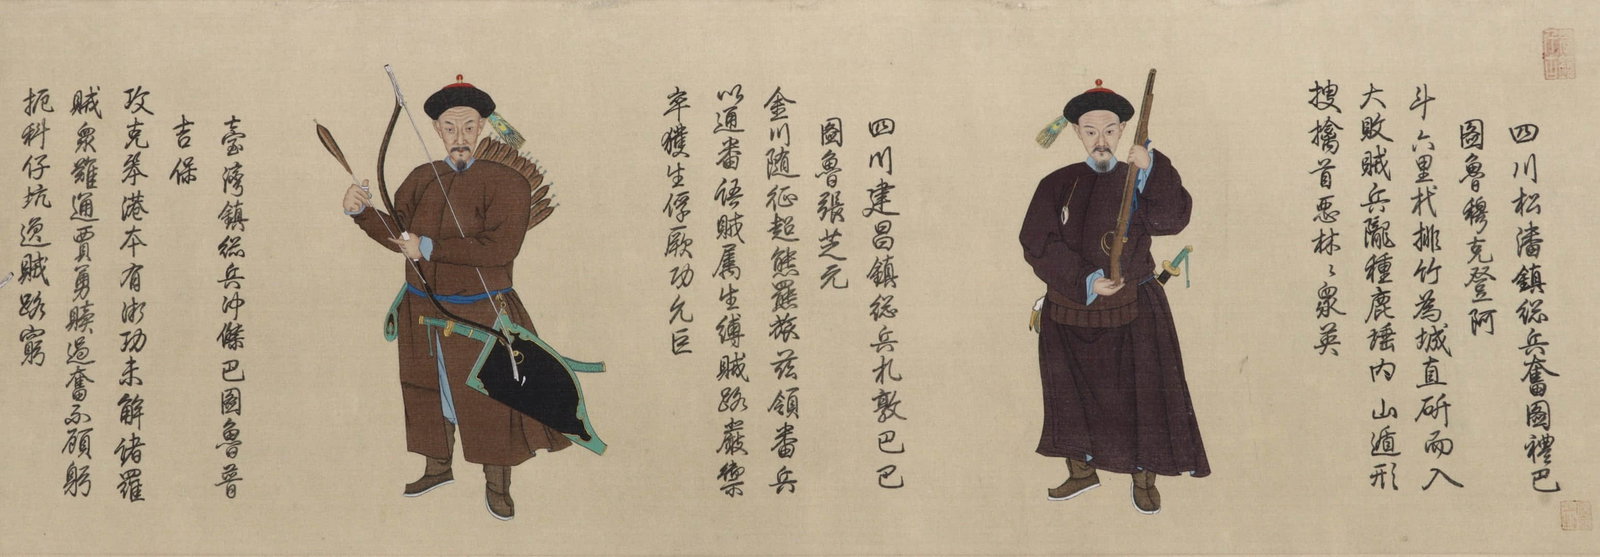 四川松潘鎮緫兵奮圖禮巴
圖魯穆克登阿
斗六里杙排竹為城直斫而入
大敗賊兵隴種鹿埵內山遁形
搜擒首惡林〻衆英
四川建昌鎮緫兵札敦巴巴
圖魯張芝元
金川隨征超熊羆旅茲領番兵
以通番語賊屬生縛賊路嚴禦
卒獲生俘厥功允巨
臺灣鎮緫兵沖傑巴圖魯普
吉保
攻克笨港本有微功未解諸羅
賊衆難通賈勇贖過奮不顧躬
扼科仔坑逸賊路窮